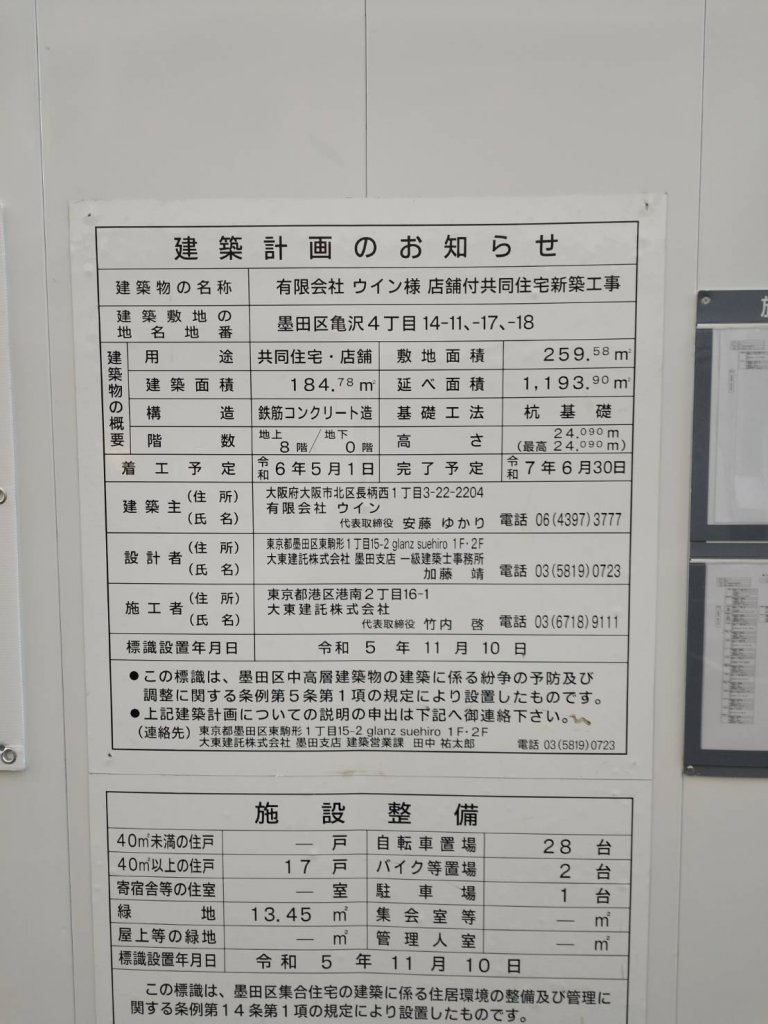 建築計画のお知らせ
建築物の名称 有限会社 ウイン様 店舗付共同住宅新築工事
建築敷地の地名地番 墨田区亀沢4丁目14-11、-17、-18
建築物の概要
用途 共同住宅・店舗 敷地面積 259.58㎡
建築面積 184.78㎡ 延べ面積 1,193.90㎡
構造 鉄筋コンクリート造 基礎工法 杭基礎
階数 地上8階/地下0階 高さ 24.090m(最高 24.090m)
着工予定 令和6年5月1日 完了予定 令和7年6月30日
建築主(住所)(氏名) 大阪府大阪市北区長柄西1丁目3-22-2204
有限会社 ウイン
代表取締役 安藤 ゆかり 電話 06(4397)3777
設計者(住所)(氏名) 東京都墨田区東駒形1丁目15-2 glanz suehiro 1F・2F
大東建託株式会社 墨田支店 一級建築士事務所
加藤 靖 電話 03(5819)0723
施工者(住所)(氏名) 東京都港区港南2丁目16-1
大東建託株式会社
代表取締役 竹内 啓 電話 03(6718)9111
標識設置年月日 令和 5 年 11 月 10 日
●この標識は、墨田区中高層建築物の建築に係る紛争の予防及び
調整に関する条例第5条第1項の規定により設置したものです。
●上記建築計画についての説明の申出は下記へ御連絡下さい。
(連絡先) 東京都墨田区東駒形1丁目15-2 glanz suehiro 1F・2F
大東建託株式会社 墨田支店 建築営業課 田中 祐太郎 電話 03(5819)0723
施設整備
40㎡未満の住戸 — 戸 自転車置場 28 台
40㎡以上の住戸 17 戸 バイク等置場 2 台
寄宿舎等の住室 — 室 駐車場 1 台
緑地 13.45 ㎡ 集会室等 — ㎡
屋上等の緑地 — ㎡ 管理人室 — ㎡
標識設置年月日 令和 5 年 11 月 10 日
この標識は、墨田区集合住宅の建築に係る住居環境の整備及び管理に
関する条例第14条第1項の規定により設置したものです。